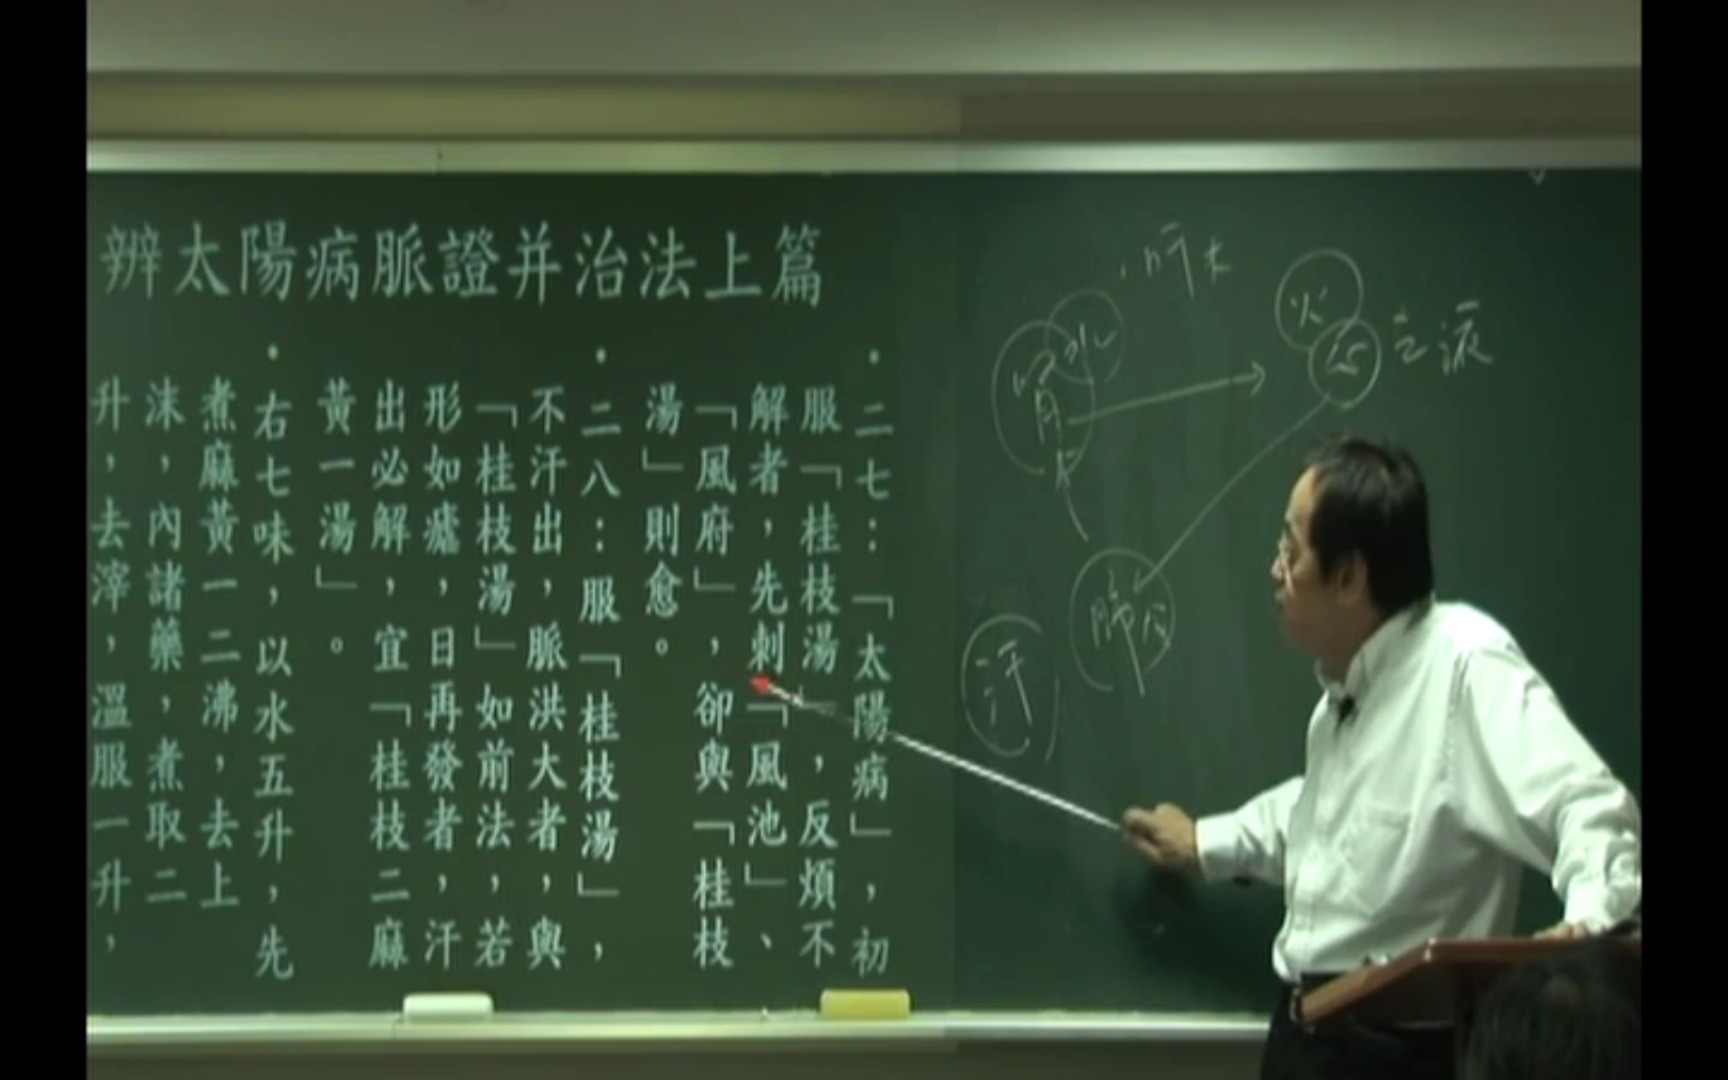 辨太陽病脈證并治法上篇
・二七：「太陽病」，初
服「桂枝湯」，反煩不
解者，先刺「風池」、
「風府」，卻與「桂枝
湯」則愈。
・二八：服「桂枝湯」，
不汗出，脈洪大者，與
「桂枝湯」如前法，若
形如瘧，日再發者，汗
出必解，宜「桂枝二麻
黃一湯」。
・右七味，以水五升，先
煮麻黃一二沸，去上
沫，內諸藥，煮取二
升，去滓，溫服一升，
肝木
火
心之液
水
腎
肺
汗